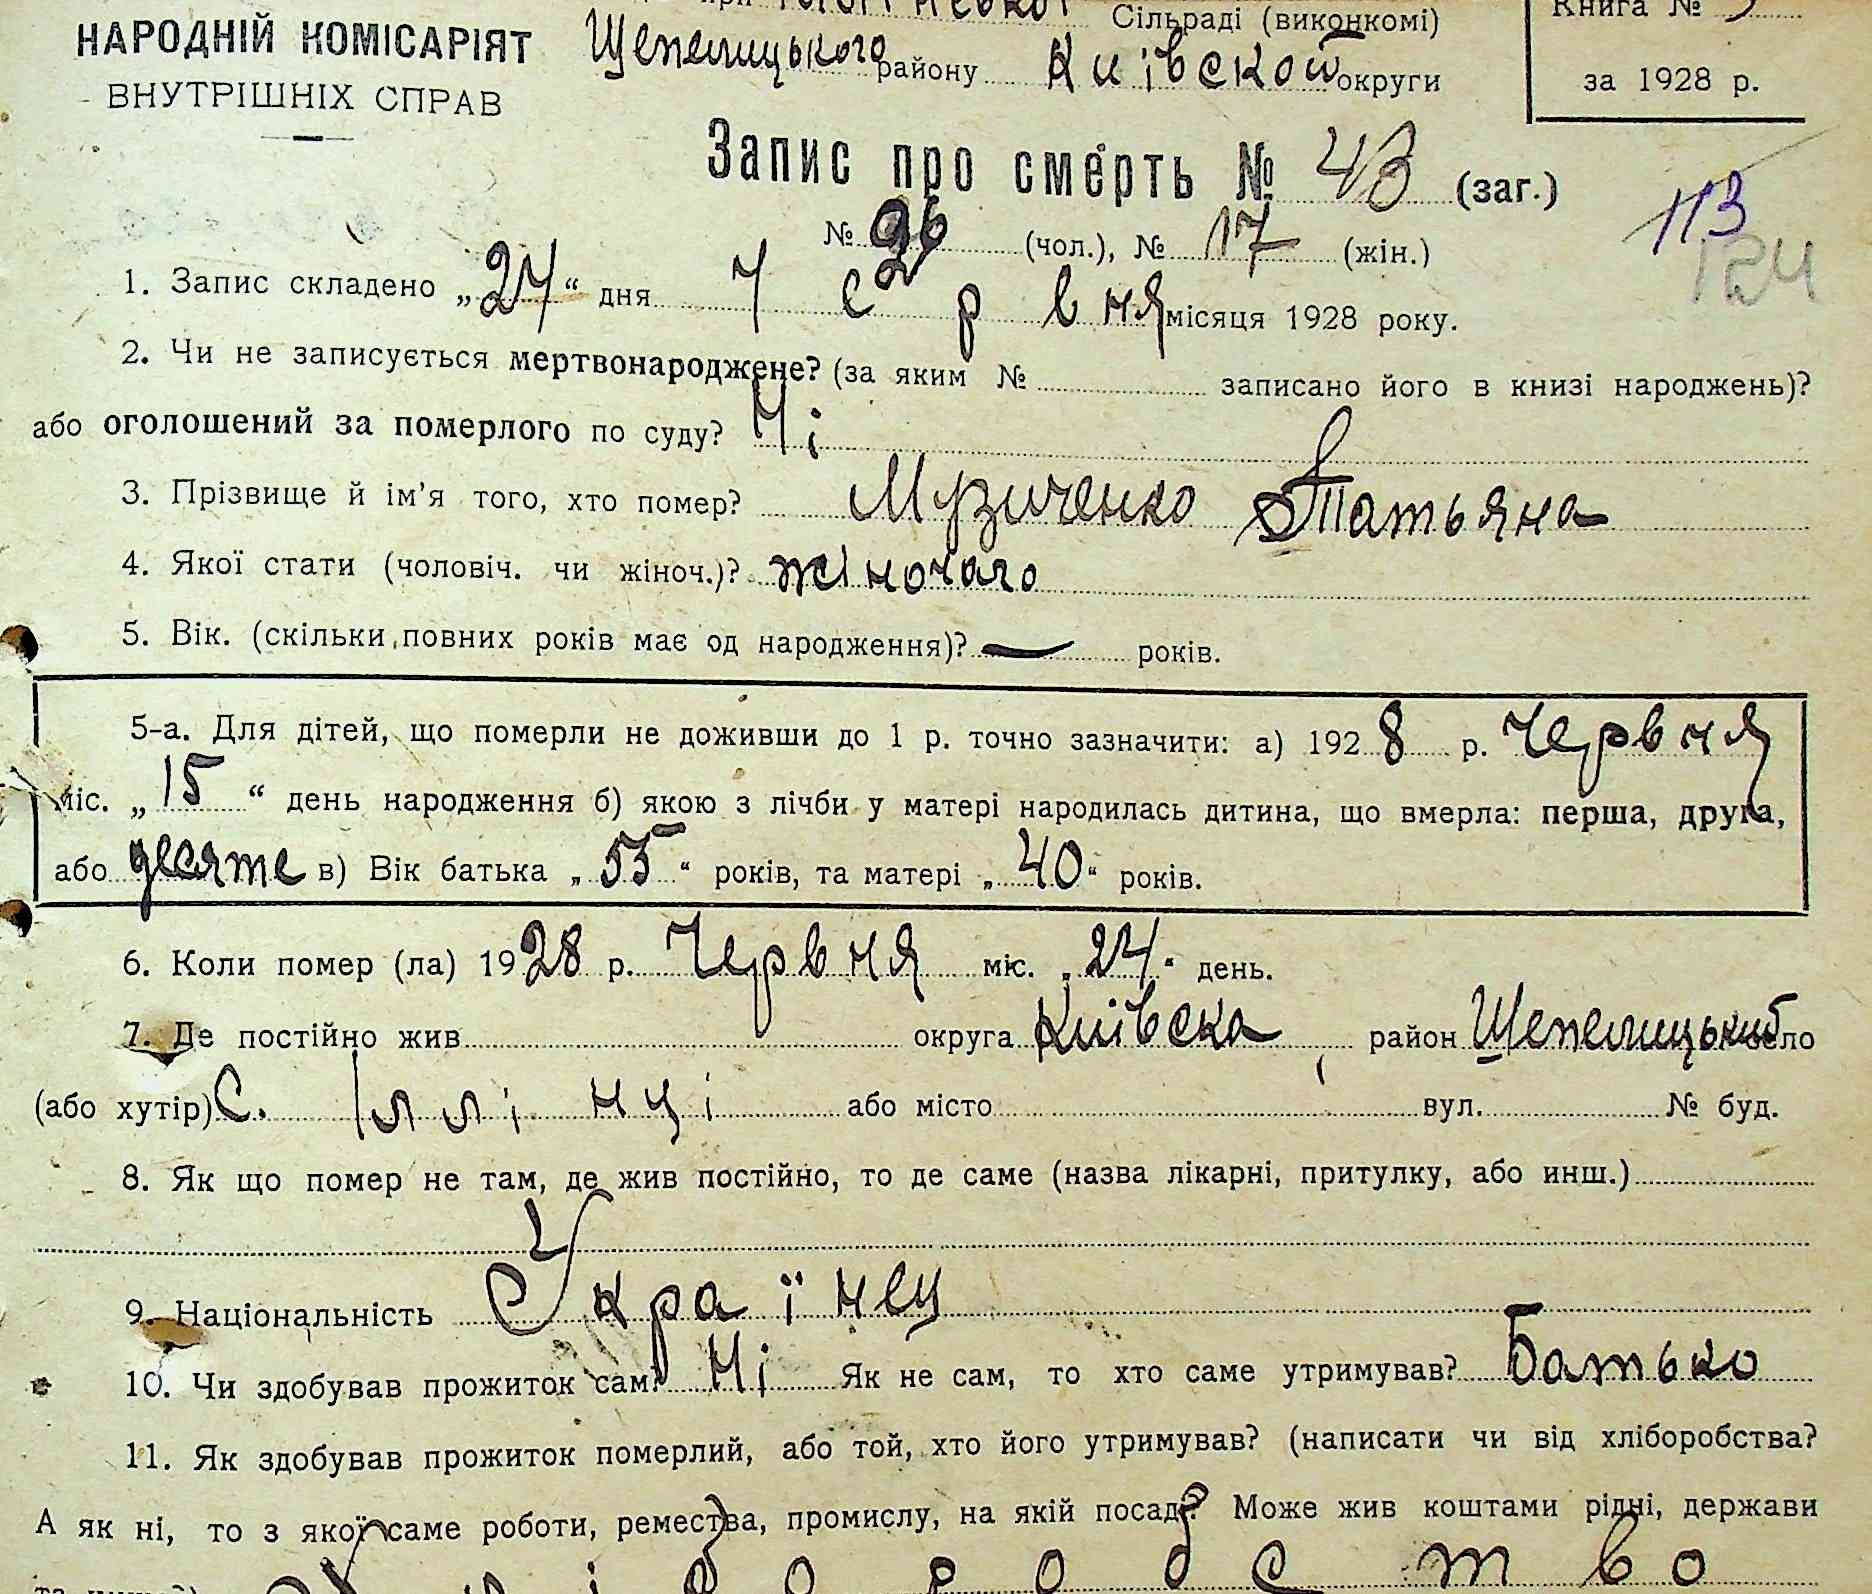 при Іллінської Сільраді (виконкомі) Книга №
НАРОДНІЙ КОМІСАРІЯТ Щепелицького району Київской округи
ВНУТРІШНІХ СПРАВ за 1928 р.
Запис про смерть № 43 (заг.)
113
№ 26 (чол.), № 17 (жін.)
124
1. Запис складено „24“ дня червня місяця 1928 року.
2. Чи не записується мертвонароджене? (за яким № записано його в книзі народжень)?
або оголошений за померлого по суду? Ні
3. Прізвище й ім'я того, хто помер? Музиченко Татьяна
4. Якої стати (чоловіч. чи жіноч.)? жіночаго
5. Вік. (скільки повних років має од народження)? — років.
5-а. Для дітей, що померли не доживши до 1 р. точно зазначити: а) 1928 р. Червня
міс. „15“ день народження б) якою з лічби у матері народилась дитина, що вмерла: перша, друга,
або десяте в) Вік батька „55“ років, та матері „40“ років.
6. Коли помер (ла) 1928 р. Червня міс. „24“ день.
7. Де постійно жив округа Київска район Щепелицький село
(або хутір) С. Іллінці або місто вул. № буд.
8. Як що помер не там, де жив постійно, то де саме (назва лікарні, притулку, або инш.)
9. Національність Українец
10. Чи здобував прожиток сам? Ні Як не сам, то хто саме утримував? Батько
11. Як здобував прожиток померлий, або той, хто його утримував? (написати чи від хліборобства?
А як ні, то з якої саме роботи, ремества, промислу, на якій посаді? Може жив коштами рідні, держави